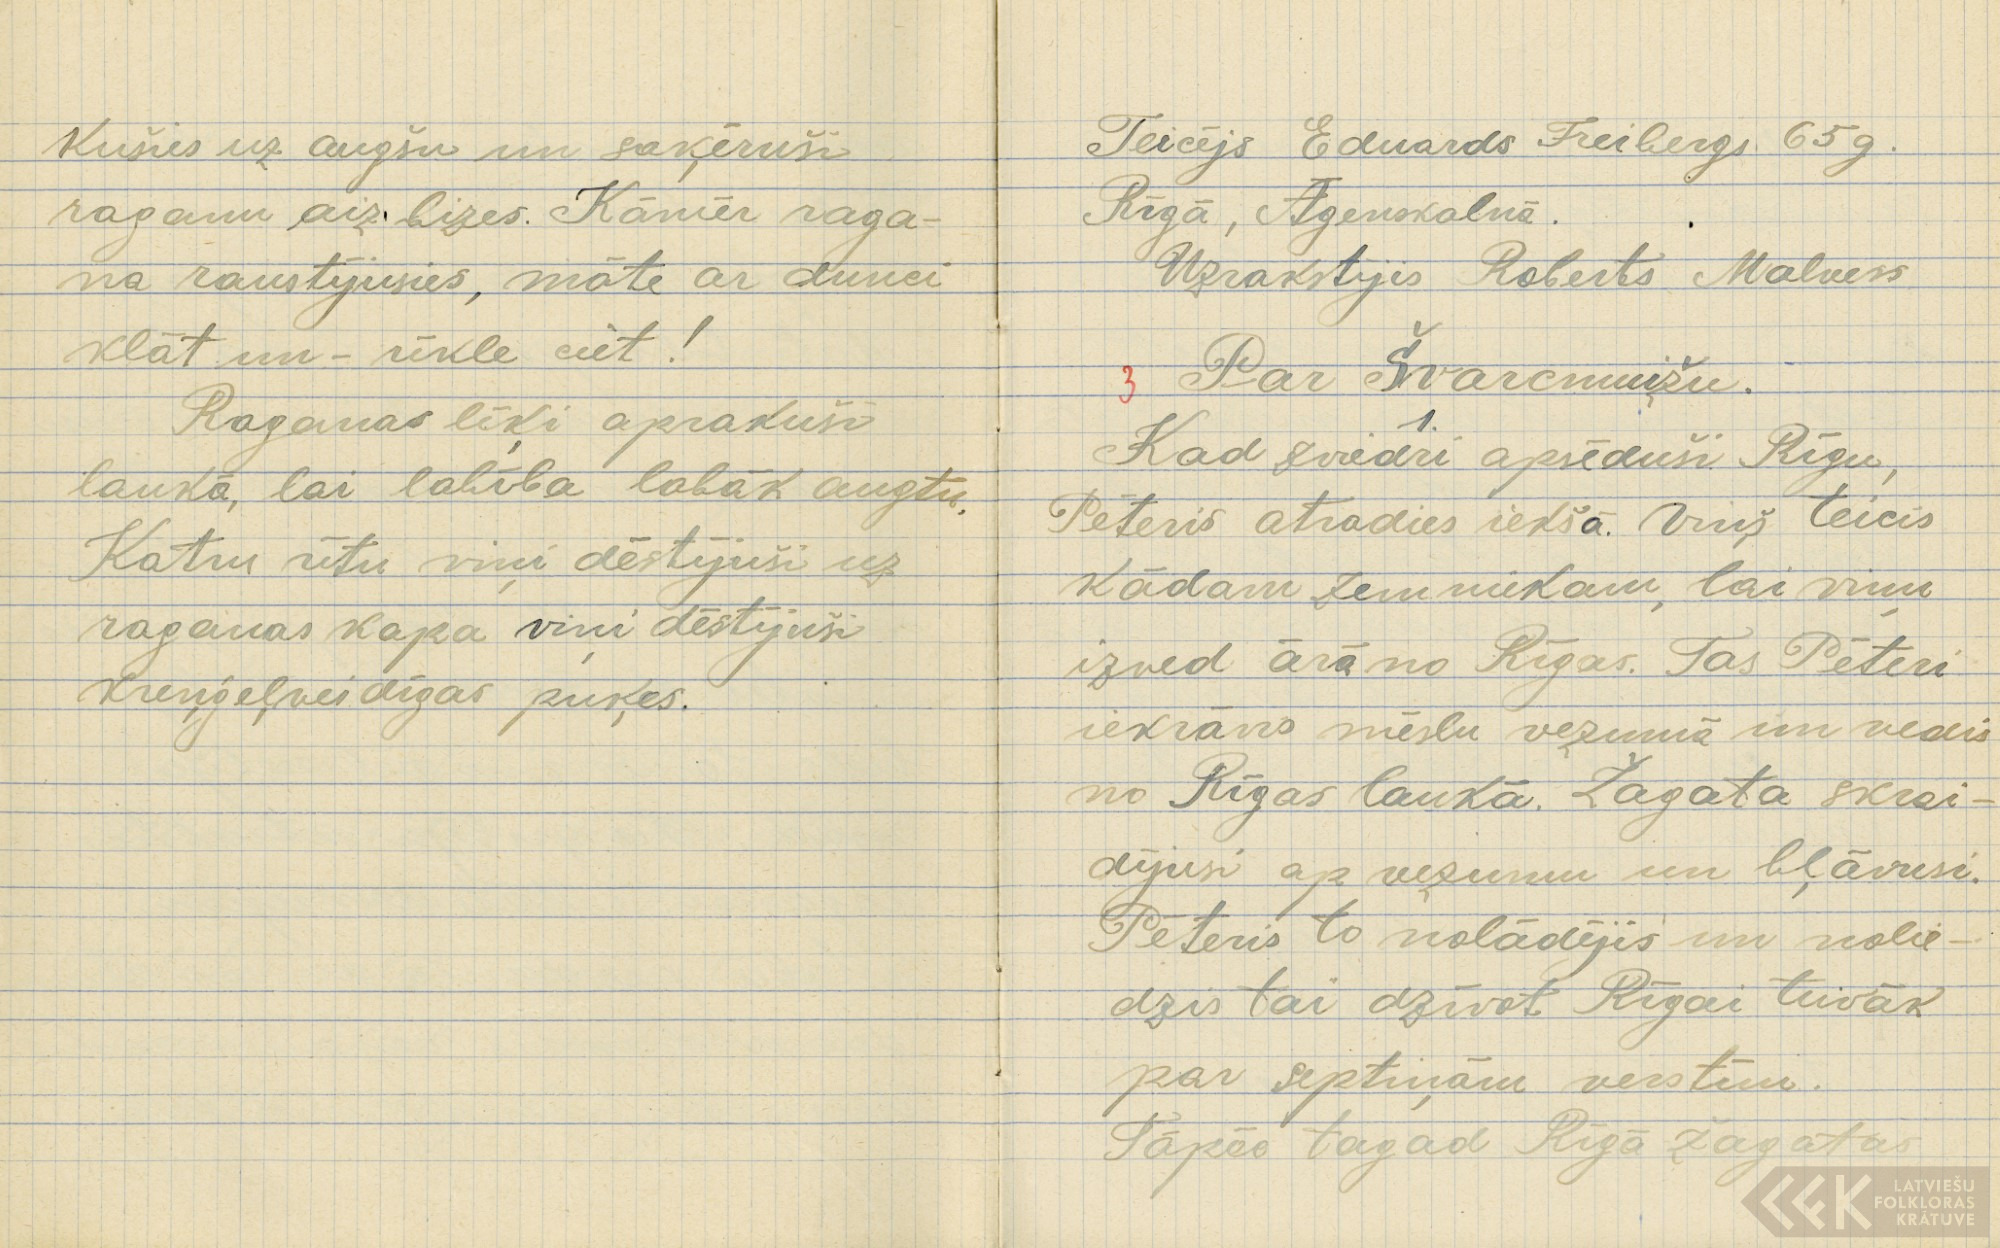 kušies uz augšu un saķēruši
raganu aiz bizes. Kāmēr raga-
na raustījusies, māte ar dunci
klāt un - rīkle ciet!
Raganas līķi aprakuši
laukā, lai labība labāk augtu.
Katru rītu viņi dēstījuši uz
raganas kapa viņi dēstījuši
kreņģeļveidīgas puķes.
Teicējs Eduards Freibergs 65 g.
Rīgā, Āgenskalnā.
Uzrakstījis Roberts Malvess
3 Par Švarcmuižu.
1.
Kad zviedri apsēduši Rīgu,
Pēteris atradies iekšā. Viņš teicis
kādam zemniekam, lai viņu
izved ārā no Rīgas. Tas Pēteri
iekrāvis mēslu vezumā un vedis
no Rīgas laukā. Žagata skrai-
dījusi ap vezumu un bļāvusi.
Pēteris to nolādējis un nolie-
dzis tai dzīvot Rīgai tuvāk
par septiņām verstīm.
Tāpēc tagad Rīgā žagatas
LATVIEŠU
FOLKLORAS
KRĀTUVE